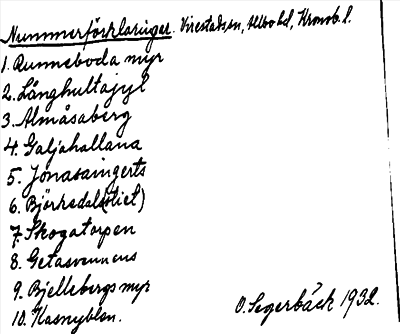 Nummerförklaringar. Virestadsn, Allbo hd, Kronob. l.
1. Runneboda myr
2. Långhultajyl
3. Almåsaberg
4. Galjahallana
5. Jonasaingerts
6. Björksdal(stiet)
7. Skogatorpen
8. Getasvennens
9. Bjellebergs myr
10. Kasnyblen.
O. Segerbäck 1932.